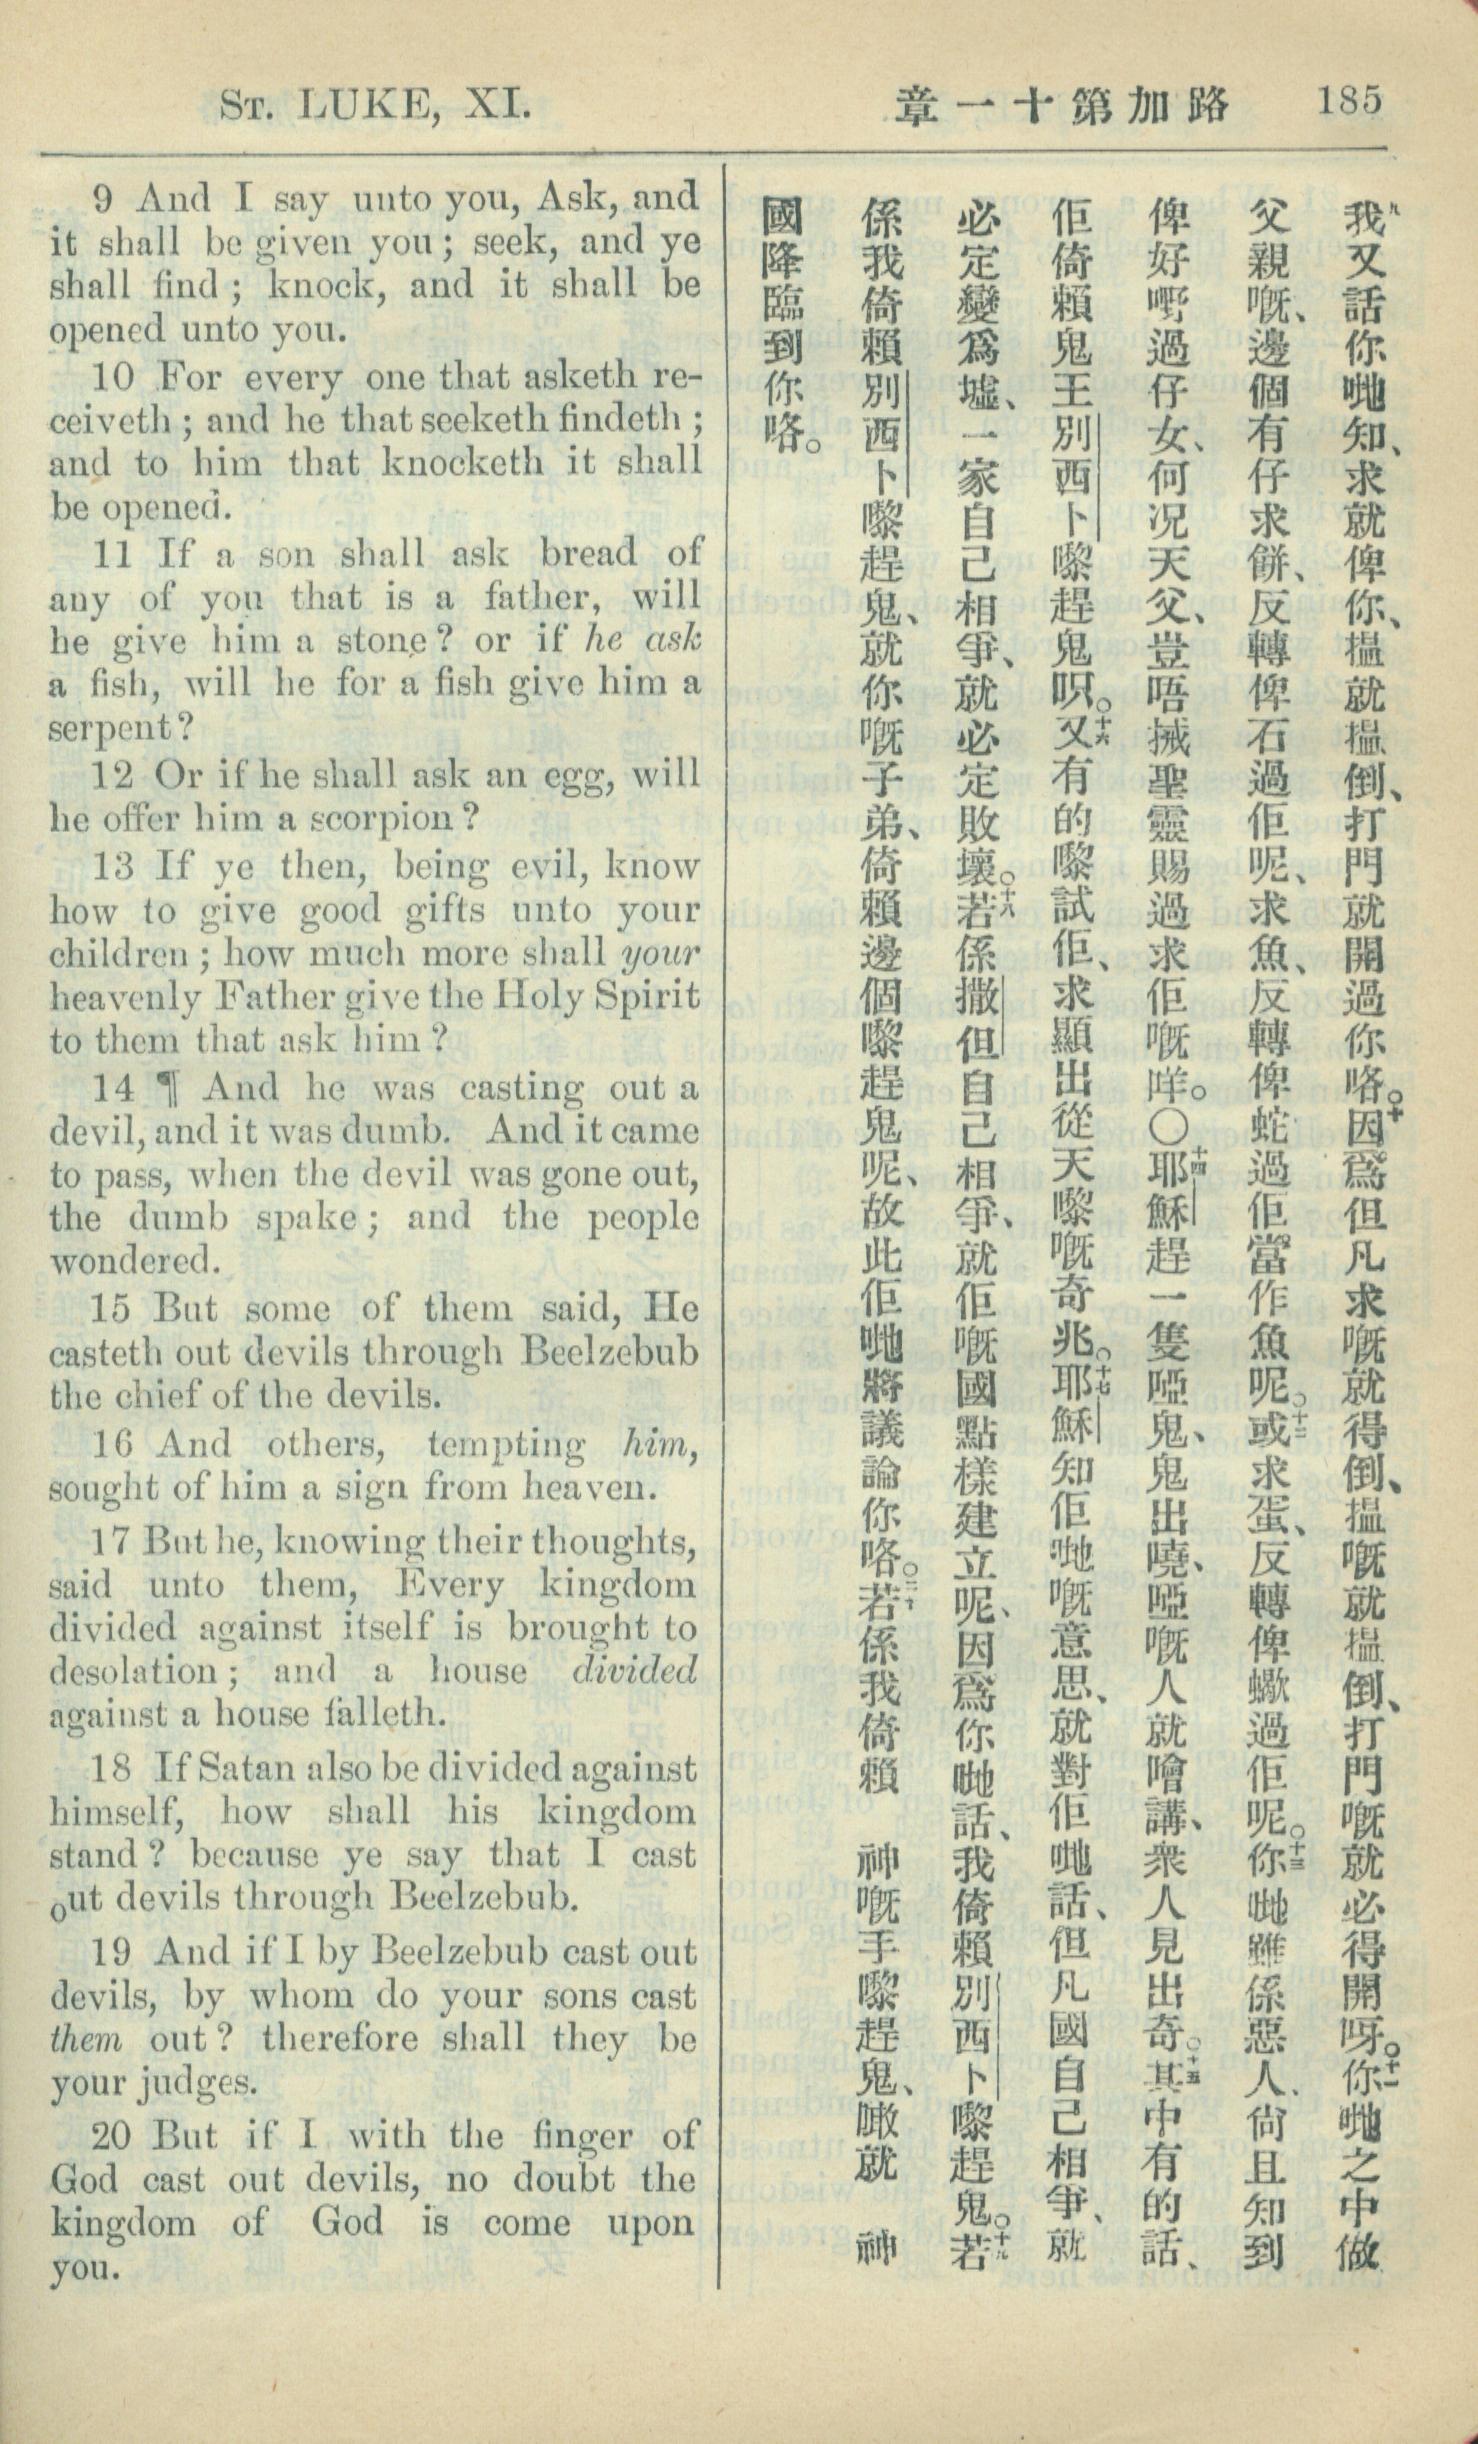 St. LUKE, XI.
路加第十一章
185
9 And I say unto you, Ask, and
it shall be given you; seek, and ye
shall find; knock, and it shall be
opened unto you.
10 For every one that asketh re-
ceiveth; and he that seeketh findeth;
and to him that knocketh it shall
be opened.
11 If a son shall ask bread of
any of you that is a father, will
he give him a stone? or if he ask
a fish, will he for a fish give him a
serpent?
12 Or if he shall ask an egg, will
he offer him a scorpion?
13 If ye then, being evil, know
how to give good gifts unto your
children; how much more shall your
heavenly Father give the Holy Spirit
to them that ask him?
14 ¶ And he was casting out a
devil, and it was dumb. And it came
to pass, when the devil was gone out,
the dumb spake; and the people
wondered.
15 But some of them said, He
casteth out devils through Beelzebub
the chief of the devils.
16 And others, tempting him,
sought of him a sign from heaven.
17 But he, knowing their thoughts,
said unto them, Every kingdom
divided against itself is brought to
desolation; and a house divided
against a house falleth.
18 If Satan also be divided against
himself, how shall his kingdom
stand? because ye say that I cast
out devils through Beelzebub.
19 And if I by Beelzebub cast out
devils, by whom do your sons cast
them out? therefore shall they be
your judges.
20 But if I with the finger of
God cast out devils, no doubt the
kingdom of God is come upon
you.
九我又話你哋知、求就俾你、搵就搵倒、打門就開過你咯。十因爲但凡求嘅就得倒、搵嘅就搵倒、打門嘅就必得開呀。十一你哋之中做
父親嘅、邊個有仔求餅、反轉俾石過佢呢、求魚、反轉俾蛇過佢當作魚呢。十二或求蛋、反轉俾蠍過佢呢。十三你哋雖係惡人、尙且知到
俾好嘢過仔女、何况天父、豈唔搣聖靈賜過求佢嘅咩。〇十四耶穌趕一隻啞鬼、鬼出嘵、啞嘅人就噲講、衆人見出奇。十五其中有的話、
佢倚賴鬼王別西卜嚟趕鬼呮。十六又有的嚟試佢、求顯出從天嚟嘅奇兆。十七耶穌知佢哋嘅意思、就對佢哋話、但凡國自己相爭、就
必定變爲墟、一家自己相爭、就必定敗壞。十八若係撒但自己相爭、就佢嘅國點樣建立呢、因爲你哋話、我倚賴別西卜嚟趕鬼。十九若
係我倚賴別西卜嚟趕鬼、就你嘅子弟、倚賴邊個嚟趕鬼呢、故此佢哋將議論你咯。二十若係我倚賴 神嘅手嚟趕鬼、噉就 神
國降臨到你咯。